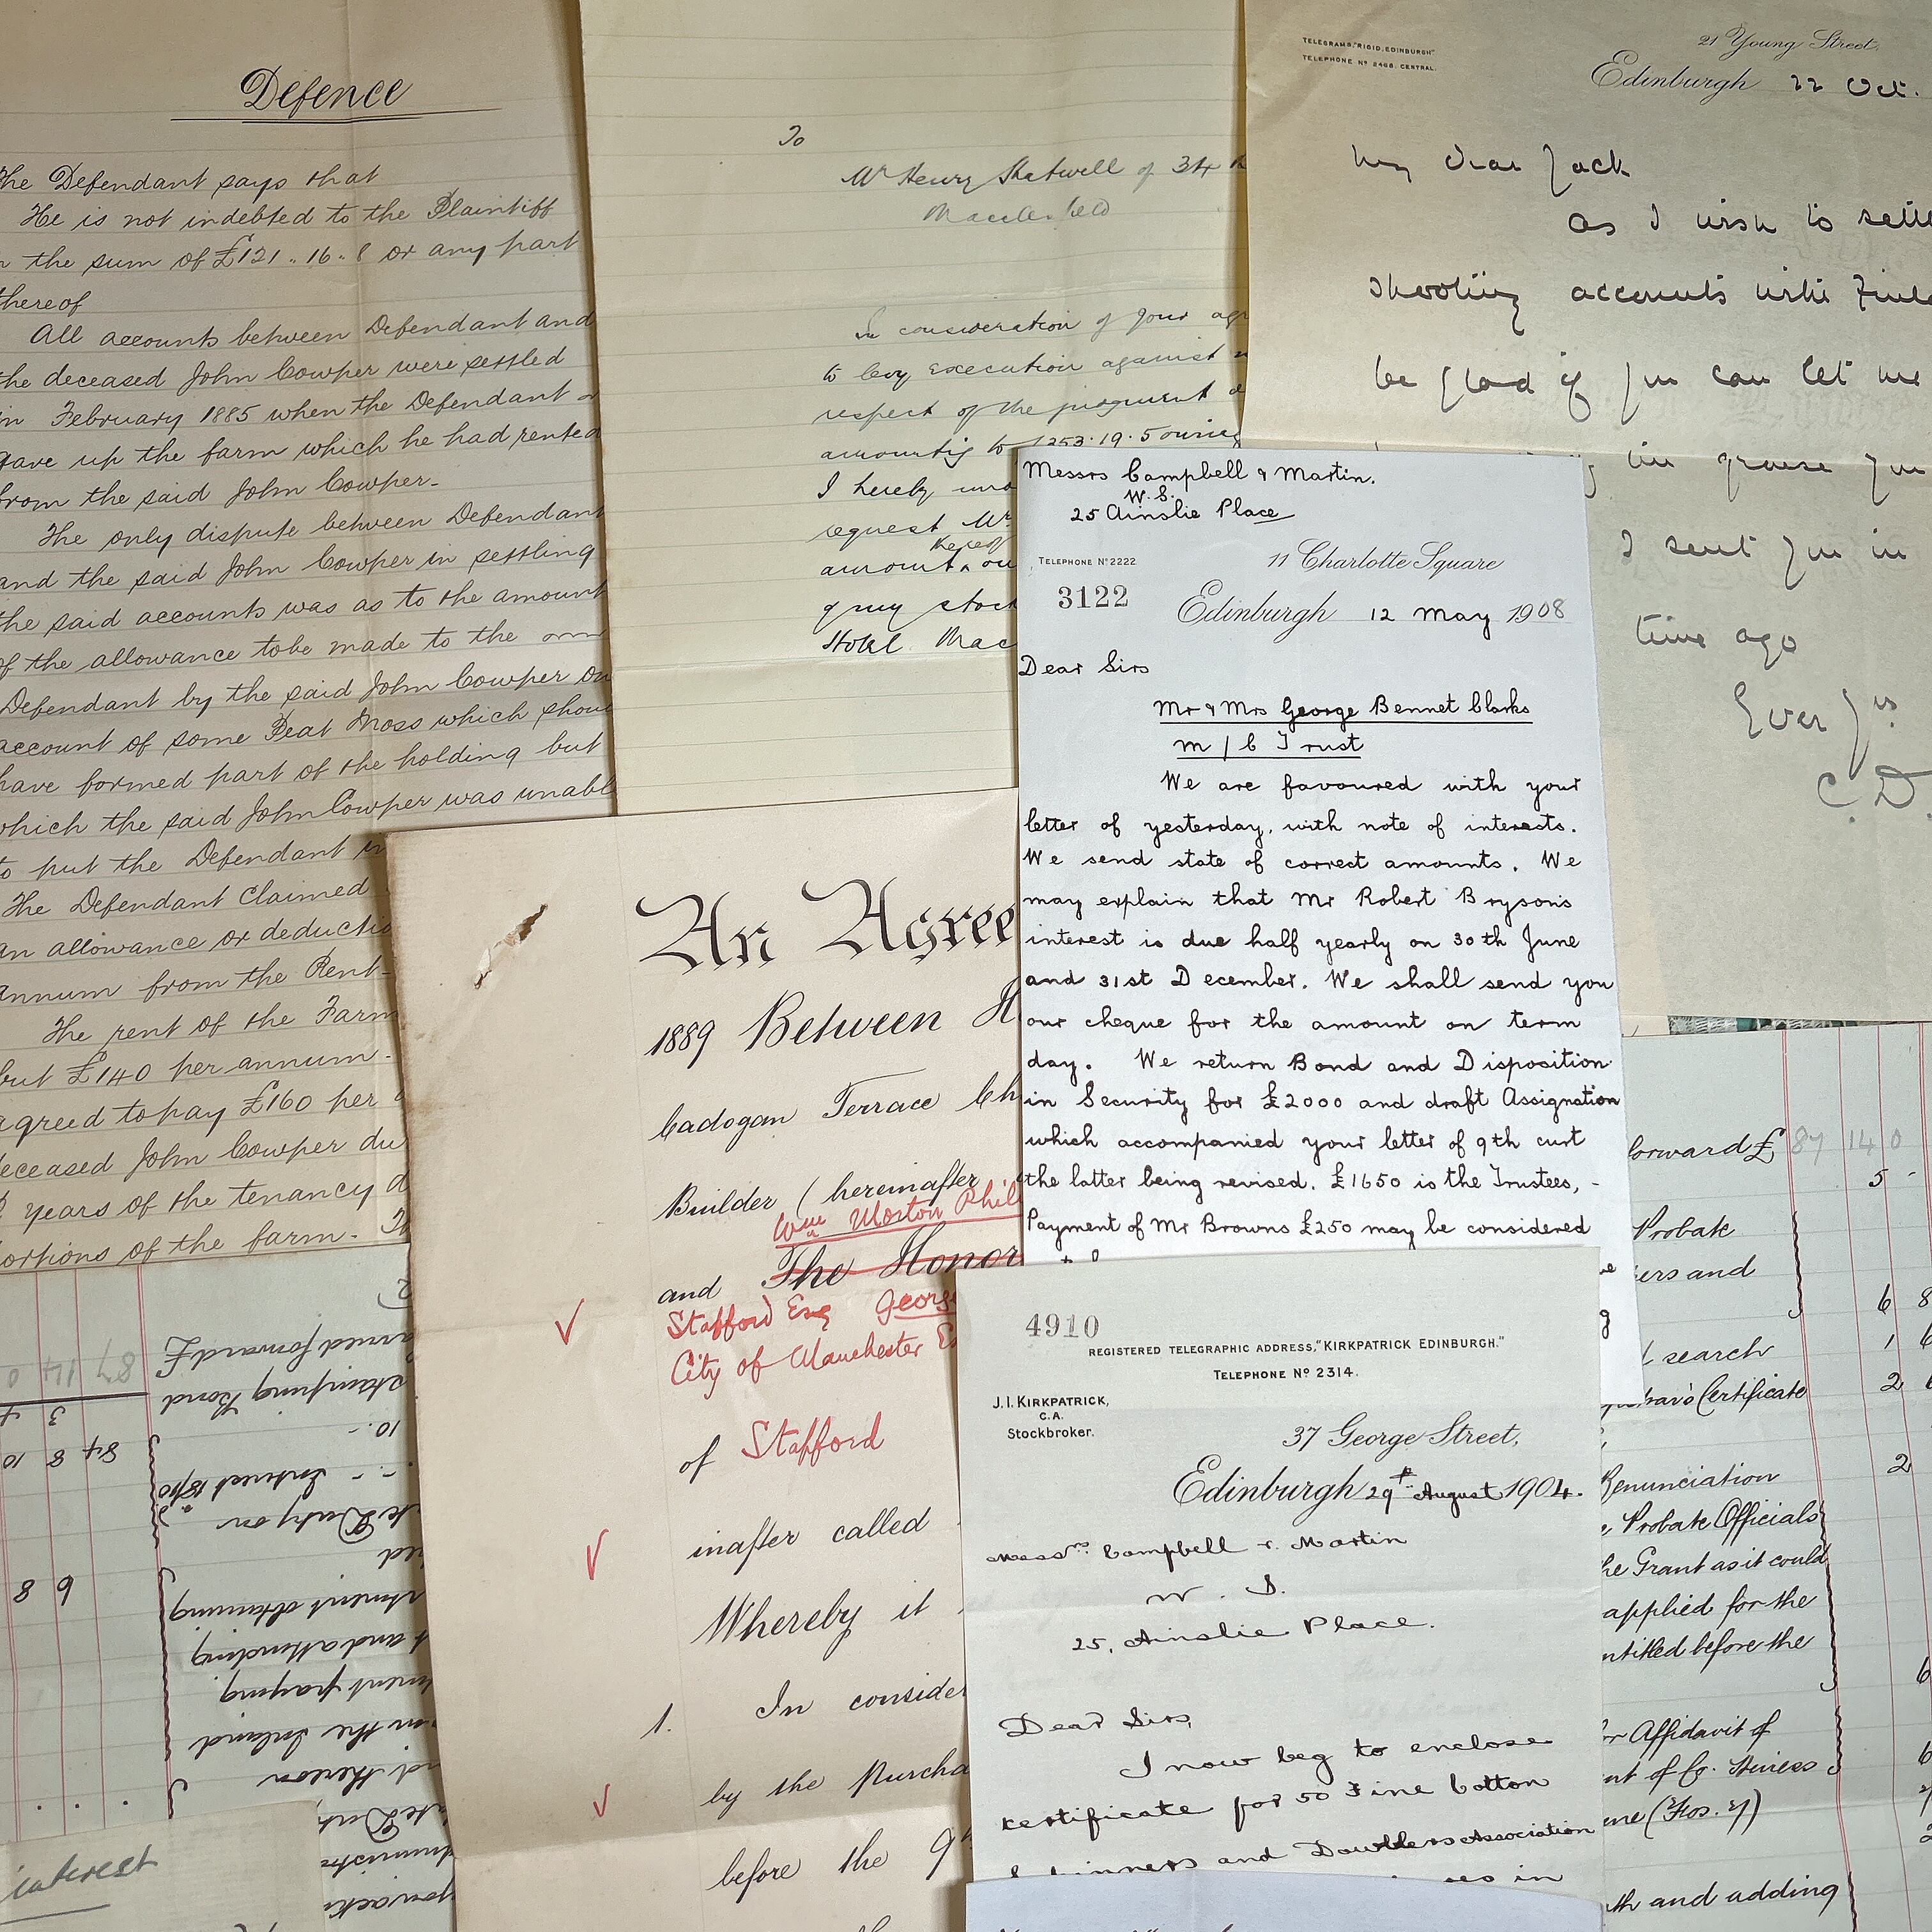 Defence
The Defendant says that
He is not indebted to the Plaintiff
in the sum of £121..16..8 or any part
thereof
All accounts between Defendant and
the deceased John Cowper were settled
in February 1885 when the Defendant
gave up the farm which he had rented
from the said John Cowper-
The only dispute between Defendant
and the said John Cowper in settling
the said accounts was as to the amount
of the allowance to be made to the
Defendant by the said John Cowper on
account of some Peat Moss which shou
have formed part of the holding but
which the said John Cowper was unabl
to put the Defendant in
The Defendant Claimed
an allowance or deductio
annum from the Rent-
The rent of the Farm
but £140 per annum-
agreed to pay £160 per
deceased John Cowper du
years of the tenancy
portions of the farm-
To
Mr Henry Shatwell of 34
Macclesfield
In consideration of your agr
to levy execution against
respect of the judgment
amountig to £253.19.5 owing
I hereby und
request Mr
thereof
amount ou
of my stock
Hotel Mac
TELEGRAMS, "RIGID, EDINBURGH"
TELEPHONE No 2466 CENTRAL.
21 Young Street,
Edinburgh 22 Oct.
My dear Jack
as I wish to settle
shooting accounts with
be glad if you can let me
grouse you
I sent you in
time ago
Ever Yrs
C.D.
Messrs Campbell & Martin.
W.S.
25 Ainslie Place
TELEPHONE No 2222
11 Charlotte Square
3122
Edinburgh 12 May 1908
Dear Sirs
Mr & Mrs George Bennet Clarks
M/C Trust
We are favoured with your
letter of yesterday, with note of interests.
We send state of correct amounts. We
may explain that Mr Robert Brysons
interest is due half yearly on 30th June
and 31st December. We shall send you
our cheque for the amount on term
day. We return Bond and Disposition
in Security for £2000 and draft Assignation
which accompanied your letter of 9th curt
the latter being revised. £1650 is the Trustees, -
Payment of Mr Browns £250 may be considered
An Agree
1889 Between H
Cadogan Terrace Ch
Builder (hereinafter
Wm Morton Phil
and The Honor
Stafford Esq George
City of Manchester E
of Stafford
inafter called
Whereby it
1. In consider
by the Purcha
before the 9th
4910
REGISTERED TELEGRAPHIC ADDRESS, "KIRKPATRICK EDINBURGH."
TELEPHONE No 2314.
J. I. KIRKPATRICK,
C.A.
Stockbroker.
37 George Street,
Edinburgh 29th August 1904.
Messrs. Campbell & Martin
W. S.
25, Ainslie Place.
Dear Sirs,
I now beg to enclose
certificate for 50 Fine Cotton
Spinners and Doublers Association
es in
forward £ 87 14 0
5 -
Probate
ers and
6 8
search 1 6
rar's Certificate 2 6
Renunciation 2
Probate Officials
he Grant as it could
applied for the
ntitled before the
6
or Affidavit of
nt of Co. Heiress
ene (Fos. 7)
th and adding
arried forward £ 87 14 0
Stamping Bond 3 4
10.-
84 8 10
Interest 18/10
te Duty on
ed
6 8
stment obtaining
t and attending
ment paying
m the Inland
nd thereon
te Duty
interest